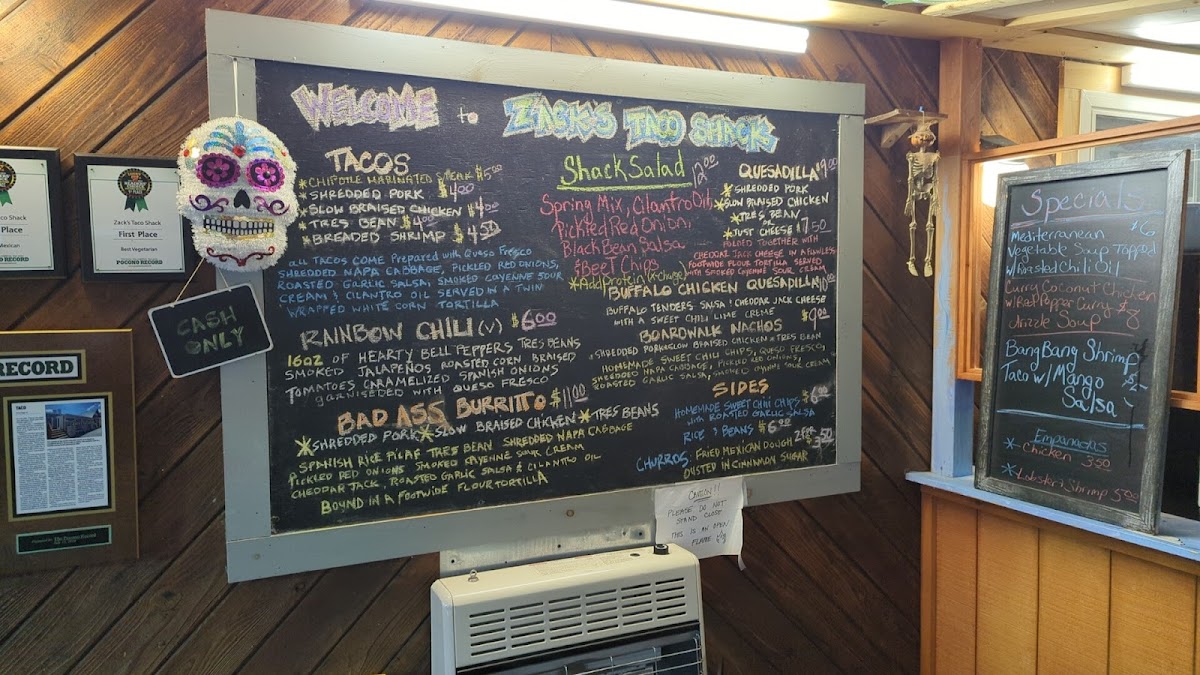 Zack's Taco Shack
Place
Zack's Taco Shack
First Place
Best Vegetarian
POCONO RECORD
RECORD
CASH
ONLY
WELCOME to ZACK'S TACO SHACK
TACOS
*CHIPOTLE MARINATED STEAK $5.00
*SHREDDED PORK $4.00
*SLOW BRAISED CHICKEN $4.00
*TRES BEAN $4.00
*BREADED SHRIMP $4.50
ALL TACOS COME PREPARED WITH QUESO FRESCO
SHREDDED NAPA CABBAGE, PICKLED RED ONIONS,
ROASTED GARLIC SALSA, SMOKED CAYENNE SOUR
CREAM & CILANTRO OIL SERVED IN A TWIN
WRAPPED WHITE CORN TORTILLA
RAINBOW CHILI (V) $6.00
16oz OF HEARTY BELL PEPPERS TRES BEANS
SMOKED JALAPEÑOS ROASTED CORN BRAISED
TOMATOES CARAMELIZED SPANISH ONIONS
GARNISEDED WITH QUESO FRESCO
BAD ASS BURRITO $11.00
*SHREDDED PORK *SLOW BRAISED CHICKEN *TRES BEANS
SPANISH RICE PILAF TRES BEAN SHREDDED NAPA CABBAGE
PICKLED RED ONIONS SMOKED CAYENNE SOUR CREAM
CHEDDAR JACK, ROASTED GARLIC SALSA & CILANTRO OIL
BOUND IN A FOOTWIDE FLOUR TORTILLA
Shack Salad 12.00
Spring Mix, Cilantro Oil,
Pickled Red Onion,
Black Bean Salsa
& Beet Chips
*Add Protein
QUESADILLA $9.00
*SHREDDED PORK
*SLOW BRAISED CHICKEN
*TRES BEAN
OR
*JUST CHEESE $7.50
FOLDED TOGETHER WITH
CHEDDAR JACK CHEESE IN A
FOOTWIDE FLOUR TORTILLA SERVED
WITH SMOKED CAYENNE SOUR CREAM
BUFFALO CHICKEN QUESADILLA $10.00
BUFFALO TENDERS SALSA & CHEDDAR JACK CHEESE
WITH A SWEET CHILI LIME CREME
BOARDWALK NACHOS $9.00
*SHREDDED PORK *SLOW BRAISED CHICKEN *TRES BEAN
HOMEMADE SWEET CHILI CHIPS, QUESO FRESCO,
SHREDDED NAPA CABBAGE, PICKLED RED ONIONS,
ROASTED GARLIC SALSA, SMOKED CAYENNE SOUR CREAM
SIDES
HOMEMADE SWEET CHILI CHIPS $6.00
WITH ROASTED GARLIC SALSA
RICE & BEANS $6.00
CHURROS: FRIED MEXICAN DOUGH 2 FOR 3.50
DUSTED IN CINNAMON SUGAR
CAUTION!!
PLEASE DO NOT
STAND CLOSE
THIS IS AN OPEN
FLAME
Specials
Mediterranean $6
Vegetable Soup Topped
w/ Roasted Chili Oil
Curry Coconut Chicken
w/ Red Pepper Curry $8
drizzle Soup
Bang Bang Shrimp
Taco w/ Mango
Salsa
Empanadas
*Chicken 3.50
*Lobster & Shrimp 5.00